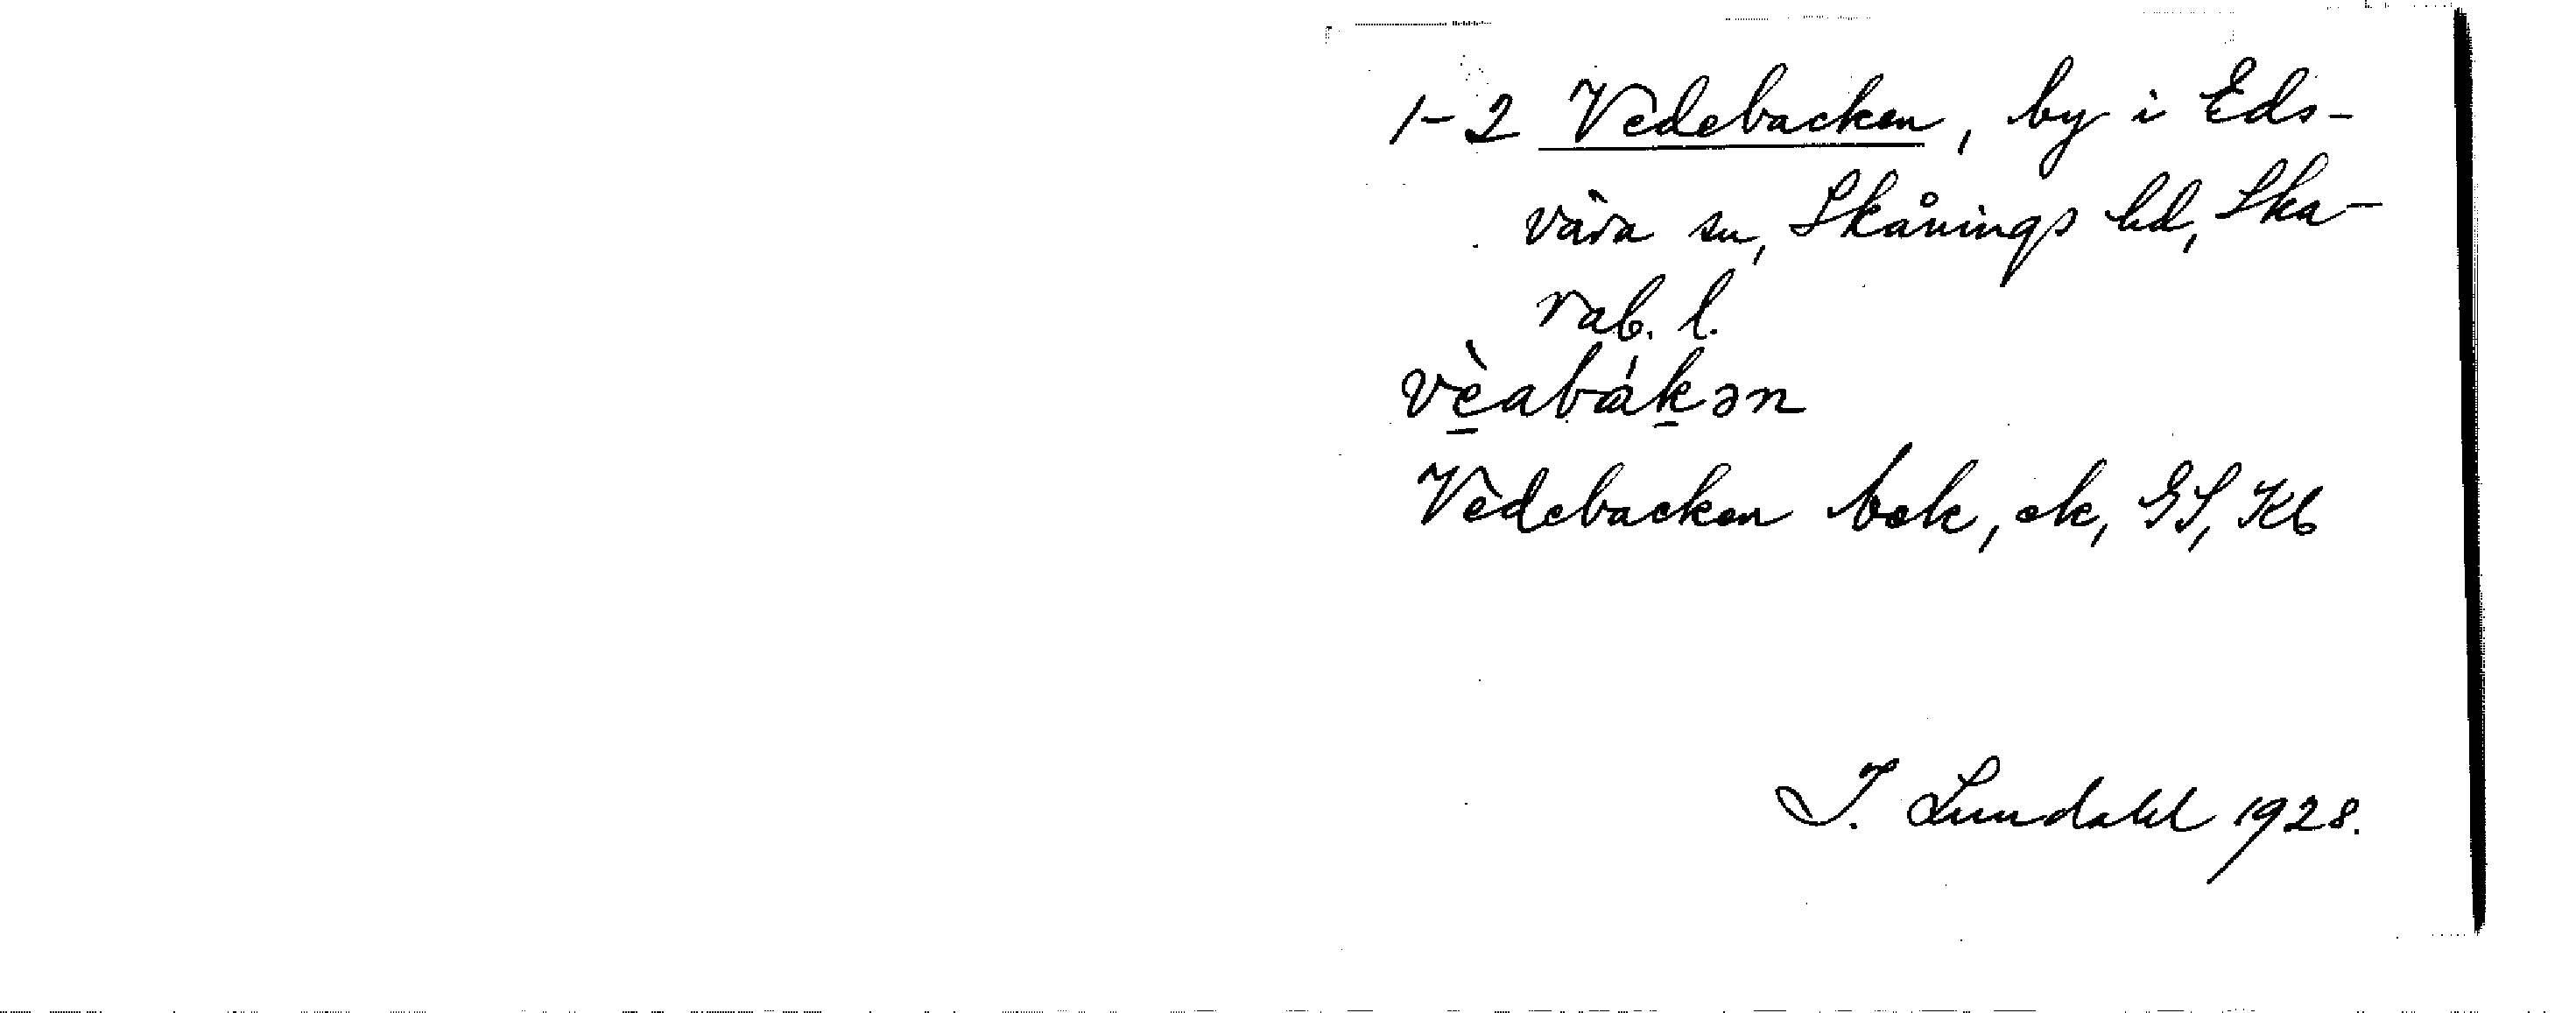 1-2 Vedebacken, by i Eds-
vära sn, Skånings hd, Ska-
rab. l.
vèabákən
Vedebacken bok, ek, GS, Kb
I. Lundahl 1928.